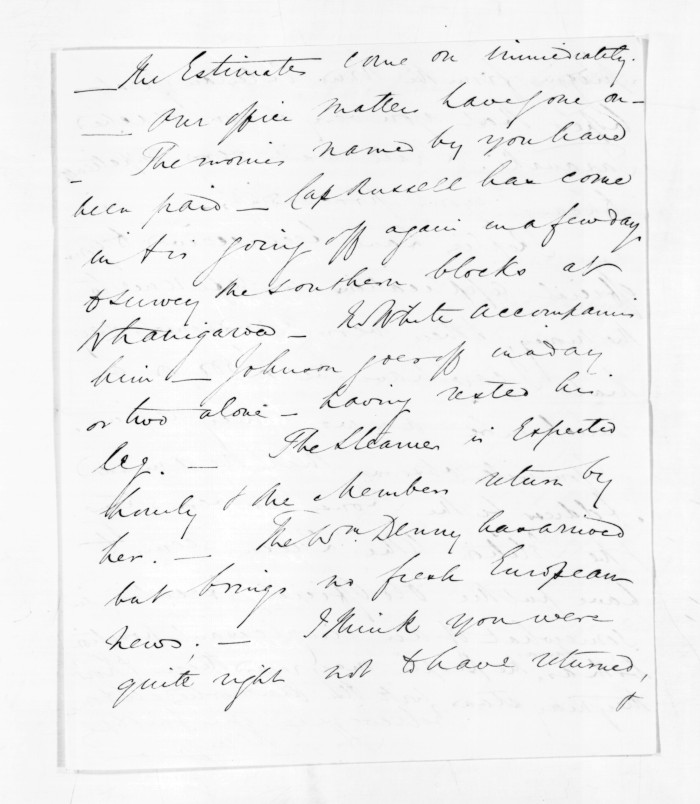 — The Estimates come on immediately.
— Our office matters have gone on —
The monies named by you have
been paid — Cap Russell has come
in & is going off again in a few days
to survey the southern blocks at
Whangarea — White accompanies
him — Johnson goes off in a day
or two alone — having rested his
leg. — The Steamer is Expected
hourly & the Members return by
her. — The Wm. Denny has arrived
but brings no fresh European
news; — I think you were
quite right not to have returned,
&